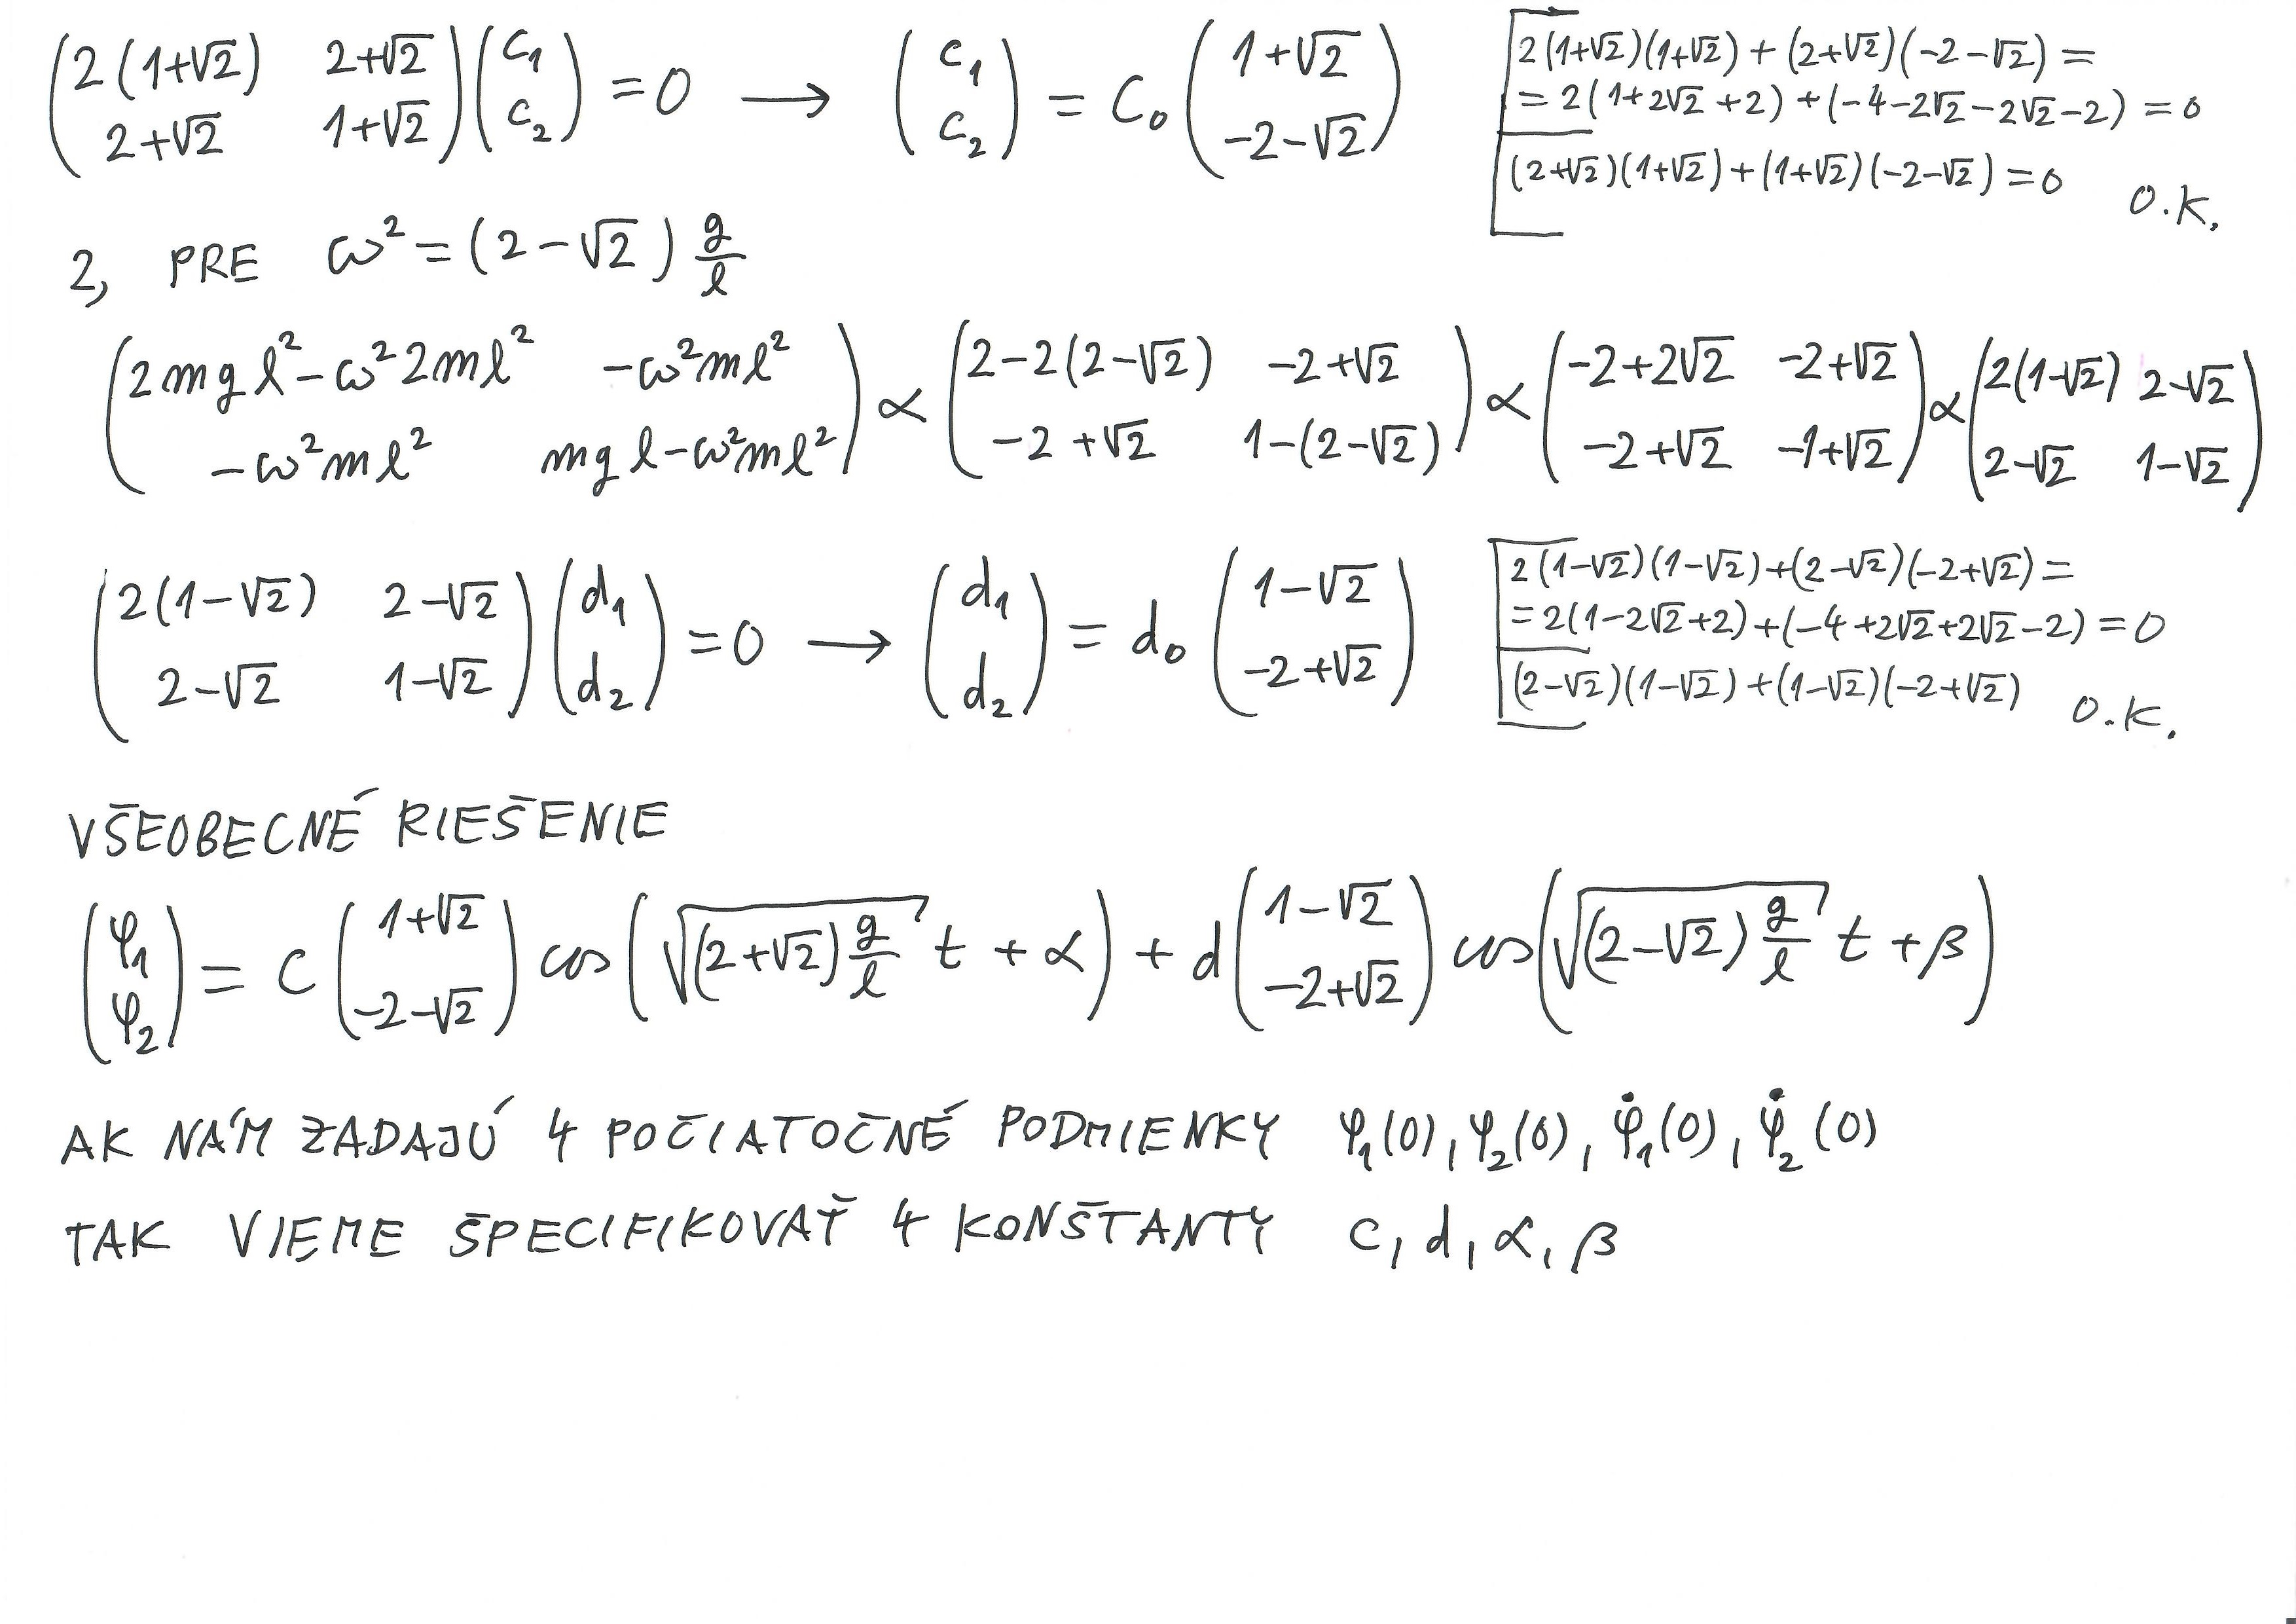 (2(1+√2) 2+√2 ; 2+√2 1+√2)(c₁ ; c₂) = 0 → (c₁ ; c₂) = C₀(1+√2 ; -2-√2)
2(1+√2)(1+√2)+(2+√2)(-2-√2) =
= 2(1+2√2+2)+(-4-2√2-2√2-2) = 0
(2+√2)(1+√2)+(1+√2)(-2-√2) = 0
O.K.
2, PRE ω² = (2-√2) g/l
(2mgl²-ω²2ml² -ω²ml² ; -ω²ml² mgl-ω²ml²) ∝ (2-2(2-√2) -2+√2 ; -2+√2 1-(2-√2)) ∝ (-2+2√2 -2+√2 ; -2+√2 -1+√2) ∝ (2(1-√2) 2-√2 ; 2-√2 1-√2)
(2(1-√2) 2-√2 ; 2-√2 1-√2)(d₁ ; d₂) = 0 → (d₁ ; d₂) = d₀(1-√2 ; -2+√2)
2(1-√2)(1-√2)+(2-√2)(-2+√2) =
= 2(1-2√2+2)+(-4+2√2+2√2-2) = 0
(2-√2)(1-√2)+(1-√2)(-2+√2)
O.K.
VŠEOBECNÉ RIEŠENIE
(φ₁ ; φ₂) = C(1+√2 ; -2-√2) cos(√((2+√2) g/l) t + α) + d(1-√2 ; -2+√2) cos(√((2-√2) g/l) t + β)
AK NÁM ZADAJÚ 4 POČIATOČNÉ PODMIENKY φ₁(0), φ₂(0), φ̇₁(0), φ̇₂(0)
TAK VIEME ŠPECIFIKOVAŤ 4 KONŠTANTY C, d, α, β